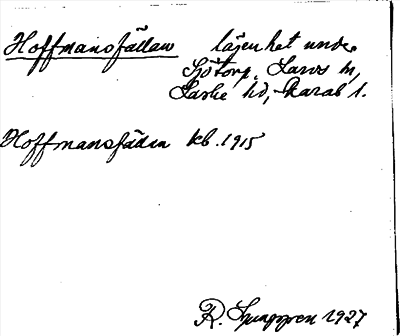 Hoffmansfällan lägenhet under
Sjötorp, Larvs sn,
Laske hd, Skarab l.
Hoffmansfällan kb. 1915
R. Ljunggren 1927